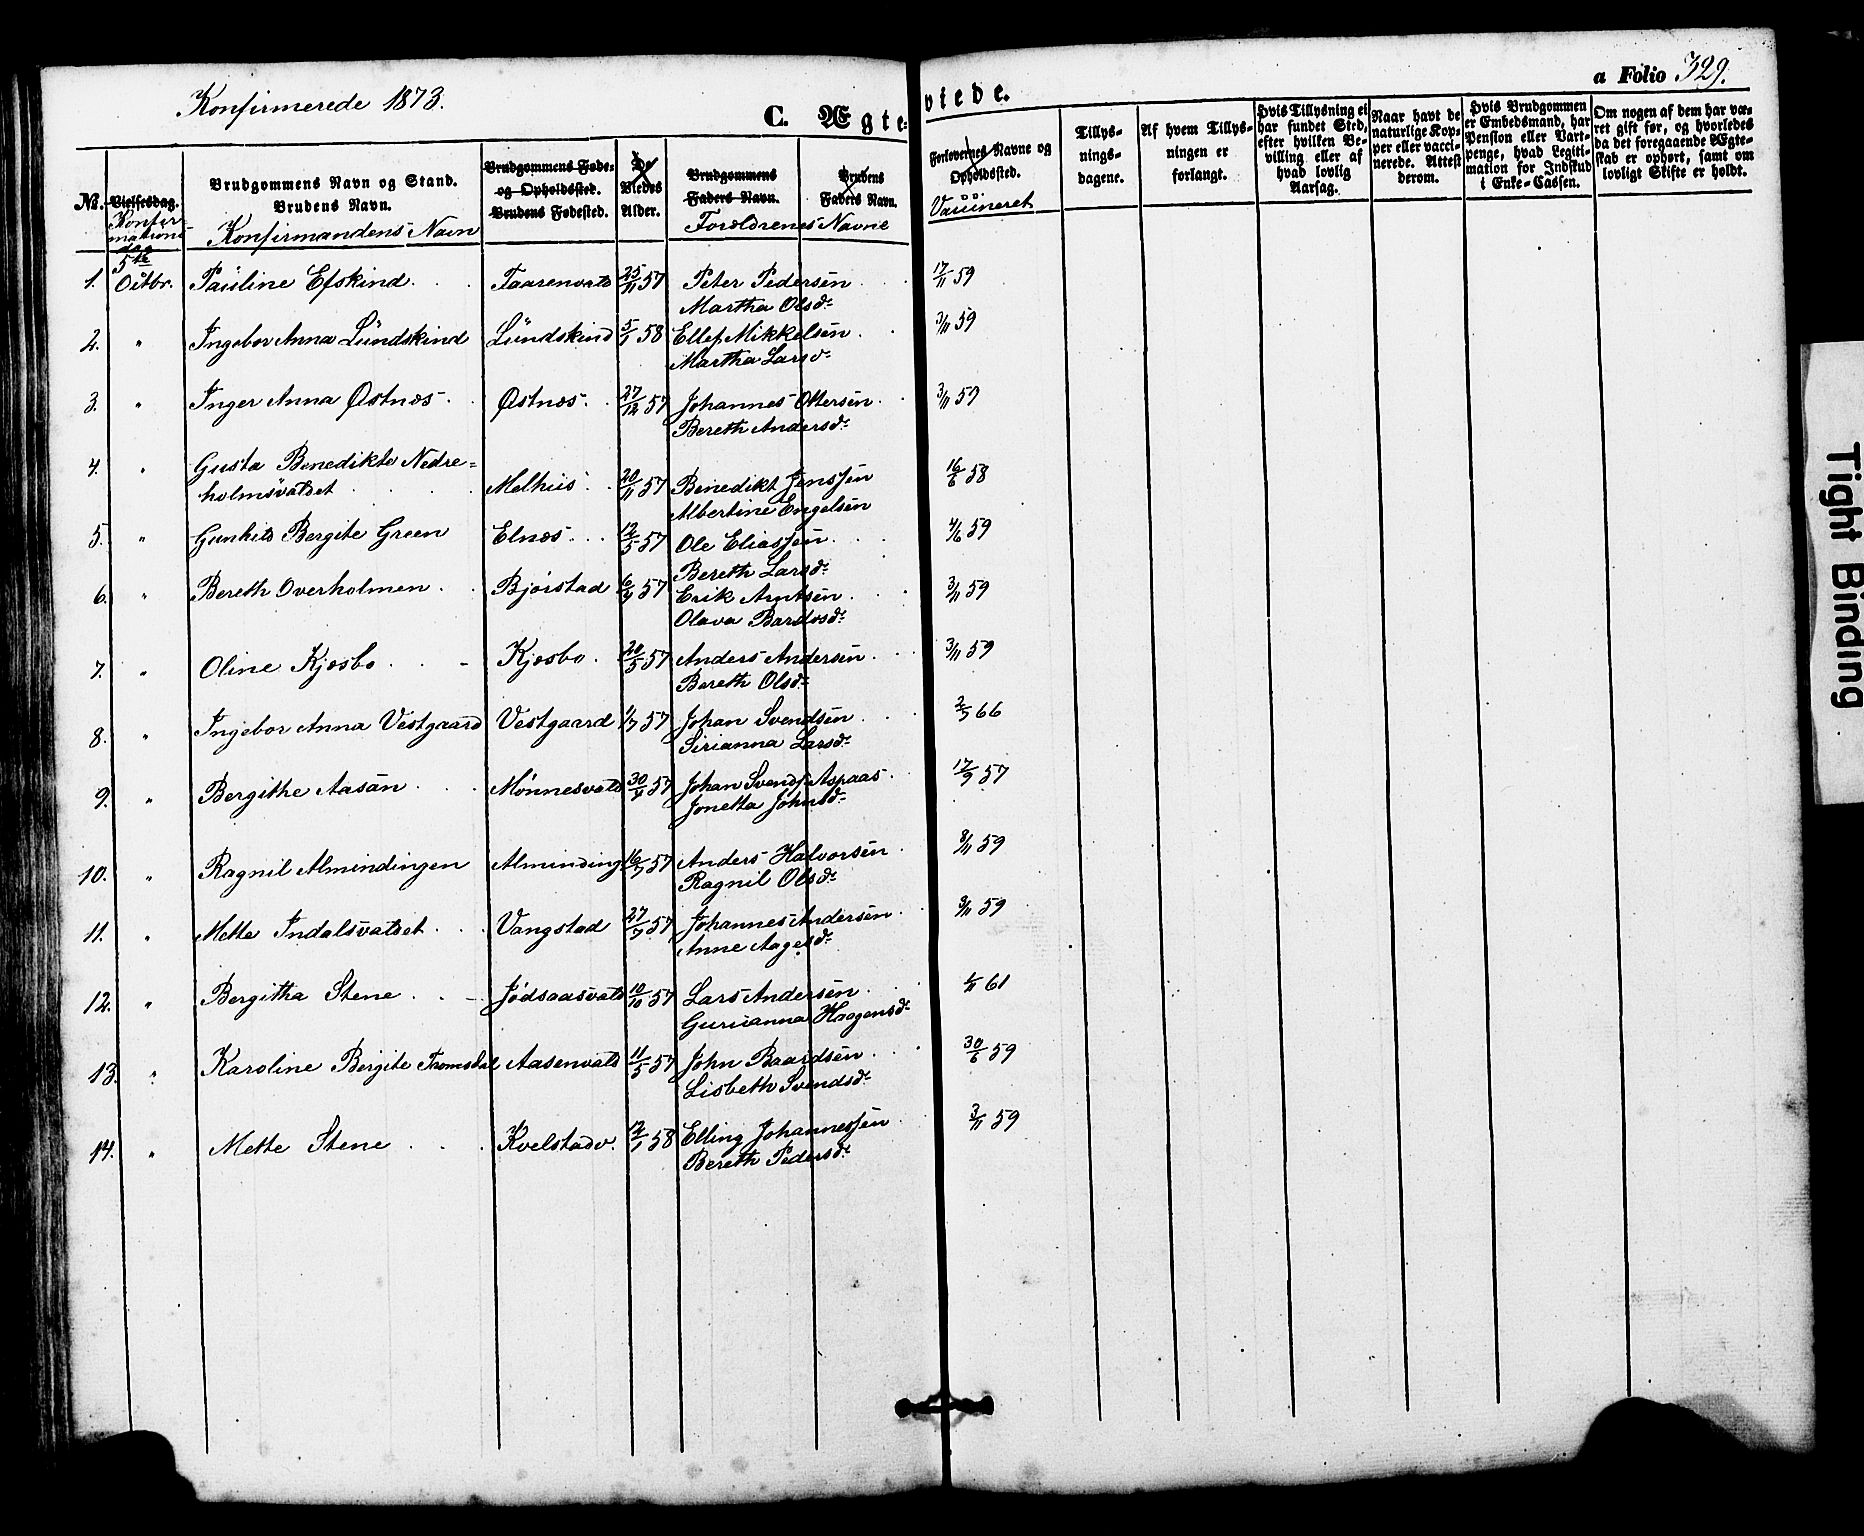 Konfirmerede 1873.
C. Ægteviede.
a Folio 329.
No. Vielsesdag. Brudgommens Navn og Stand. Brudens Navn. Brudgommens Føde- og Opholdssted. Brudens Fødested. De Viedes Alder. Brudgommens Faders Navn. Brudens Faders Navn. Forlovernes Navne og Opholdssted. Tillysningsdagene. Af hvem Tillysningen er forlangt. Hvis Tillysning ei har fundet Sted, efter hvilken Bevilling eller af hvad lovlig Aarsag. Naar havt de naturlige Kopper eller vaccinerede. Attest derom. Hvis Brudgommen er Embedsmand, har Pension eller Vartpenge, hvad Legitimation for Indskud i Enke-Cassen. Om nogen af dem har været gift før, og hvorledes da det foregaaende Ægteskab er ophørt, samt om lovligt Skifte er holdt.
Konfirmations dag Konfirmandens Navn Forældrenes Navne Vaccineret
1. 5te Octbr. Pauline Efskind Taarenvald 25/11 57 Peter Pedersen 17/11 59
Martha Olsd.
2. " Ingebor Anna Lundskind Lundskind 5/1 58 Ellef Mikkelsen 3/11 59
Martha Larsd.
3. " Inger Anna Østnes Østnes 27/12 57 Johannes Ottersen 3/11 59
Bereth Andersd.
4. " Gusta Benedikte Nedre=
holmsvaldet Melhus 20/11 57 Benedikt Jenssen 16/6 58
Albertine Engelsen
5. " Gunhild Bergite Green Elnes 12/5 57 Ole Eliassen 4/6 59
Bereth Larsd.
6. " Bereth Overholmen Bjørstad 6/9 57 Erik Arntsen 3/11 59
Olava Bardosd.
7. " Oline Kjesbo Kjesbo 20/5 57 Anders Andersen 3/11 59
Bereth Olsd.
8. " Ingebor Anna Vestgaard Vestgaard 1/7 57 Johan Svendsen 2/7 66
Sirianna Larsd.
9. " Bergithe Aasan Mønnesvald 30/4 57 Johan Svends. Aspaas 17/9 57
Jonetta Johnsd.
10. " Ragnil Almindingen Alminding 16/7 57 Anders Halvorsen 8/11 59
Ragnil Olsd.
11. " Mette Indalsvaldet Vangstad 27/7 57 Johannes Andersen 9/11 59
Anne Aagesd.
12. " Bergitha Stene Jødsaasvald 10/10 57 Lars Andersen 61
Gurianna Haagensd.
13. " Karoline Bergite Tromsdal Aasenvald 11/5 57 John Baardsen 30/6 59
Lisbeth Svendsd.
14. " Mette Stene Kvelstadv. 12/1 58 Elling Johannessen 3/11 59
Bereth Pedersd.
Tight Binding